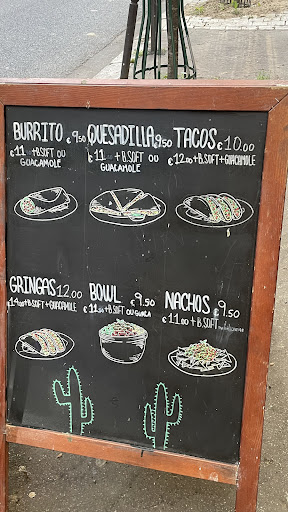 BURRITO €9.50
€11 +B.SOFT OU
GUACAMOLE
QUESADILLA 9.50
€11 +B.SOFT OU
GUACAMOLE
TACOS €10.00
€12.00+B.SOFT+GUACAMOLE
GRINGAS 12.00
€14.00+B.SOFT+GUACAMOLE
BOWL €9.50
€11 +B.SOFT OU GUACA
NACHOS €9.50
€11.00+B.SOFT